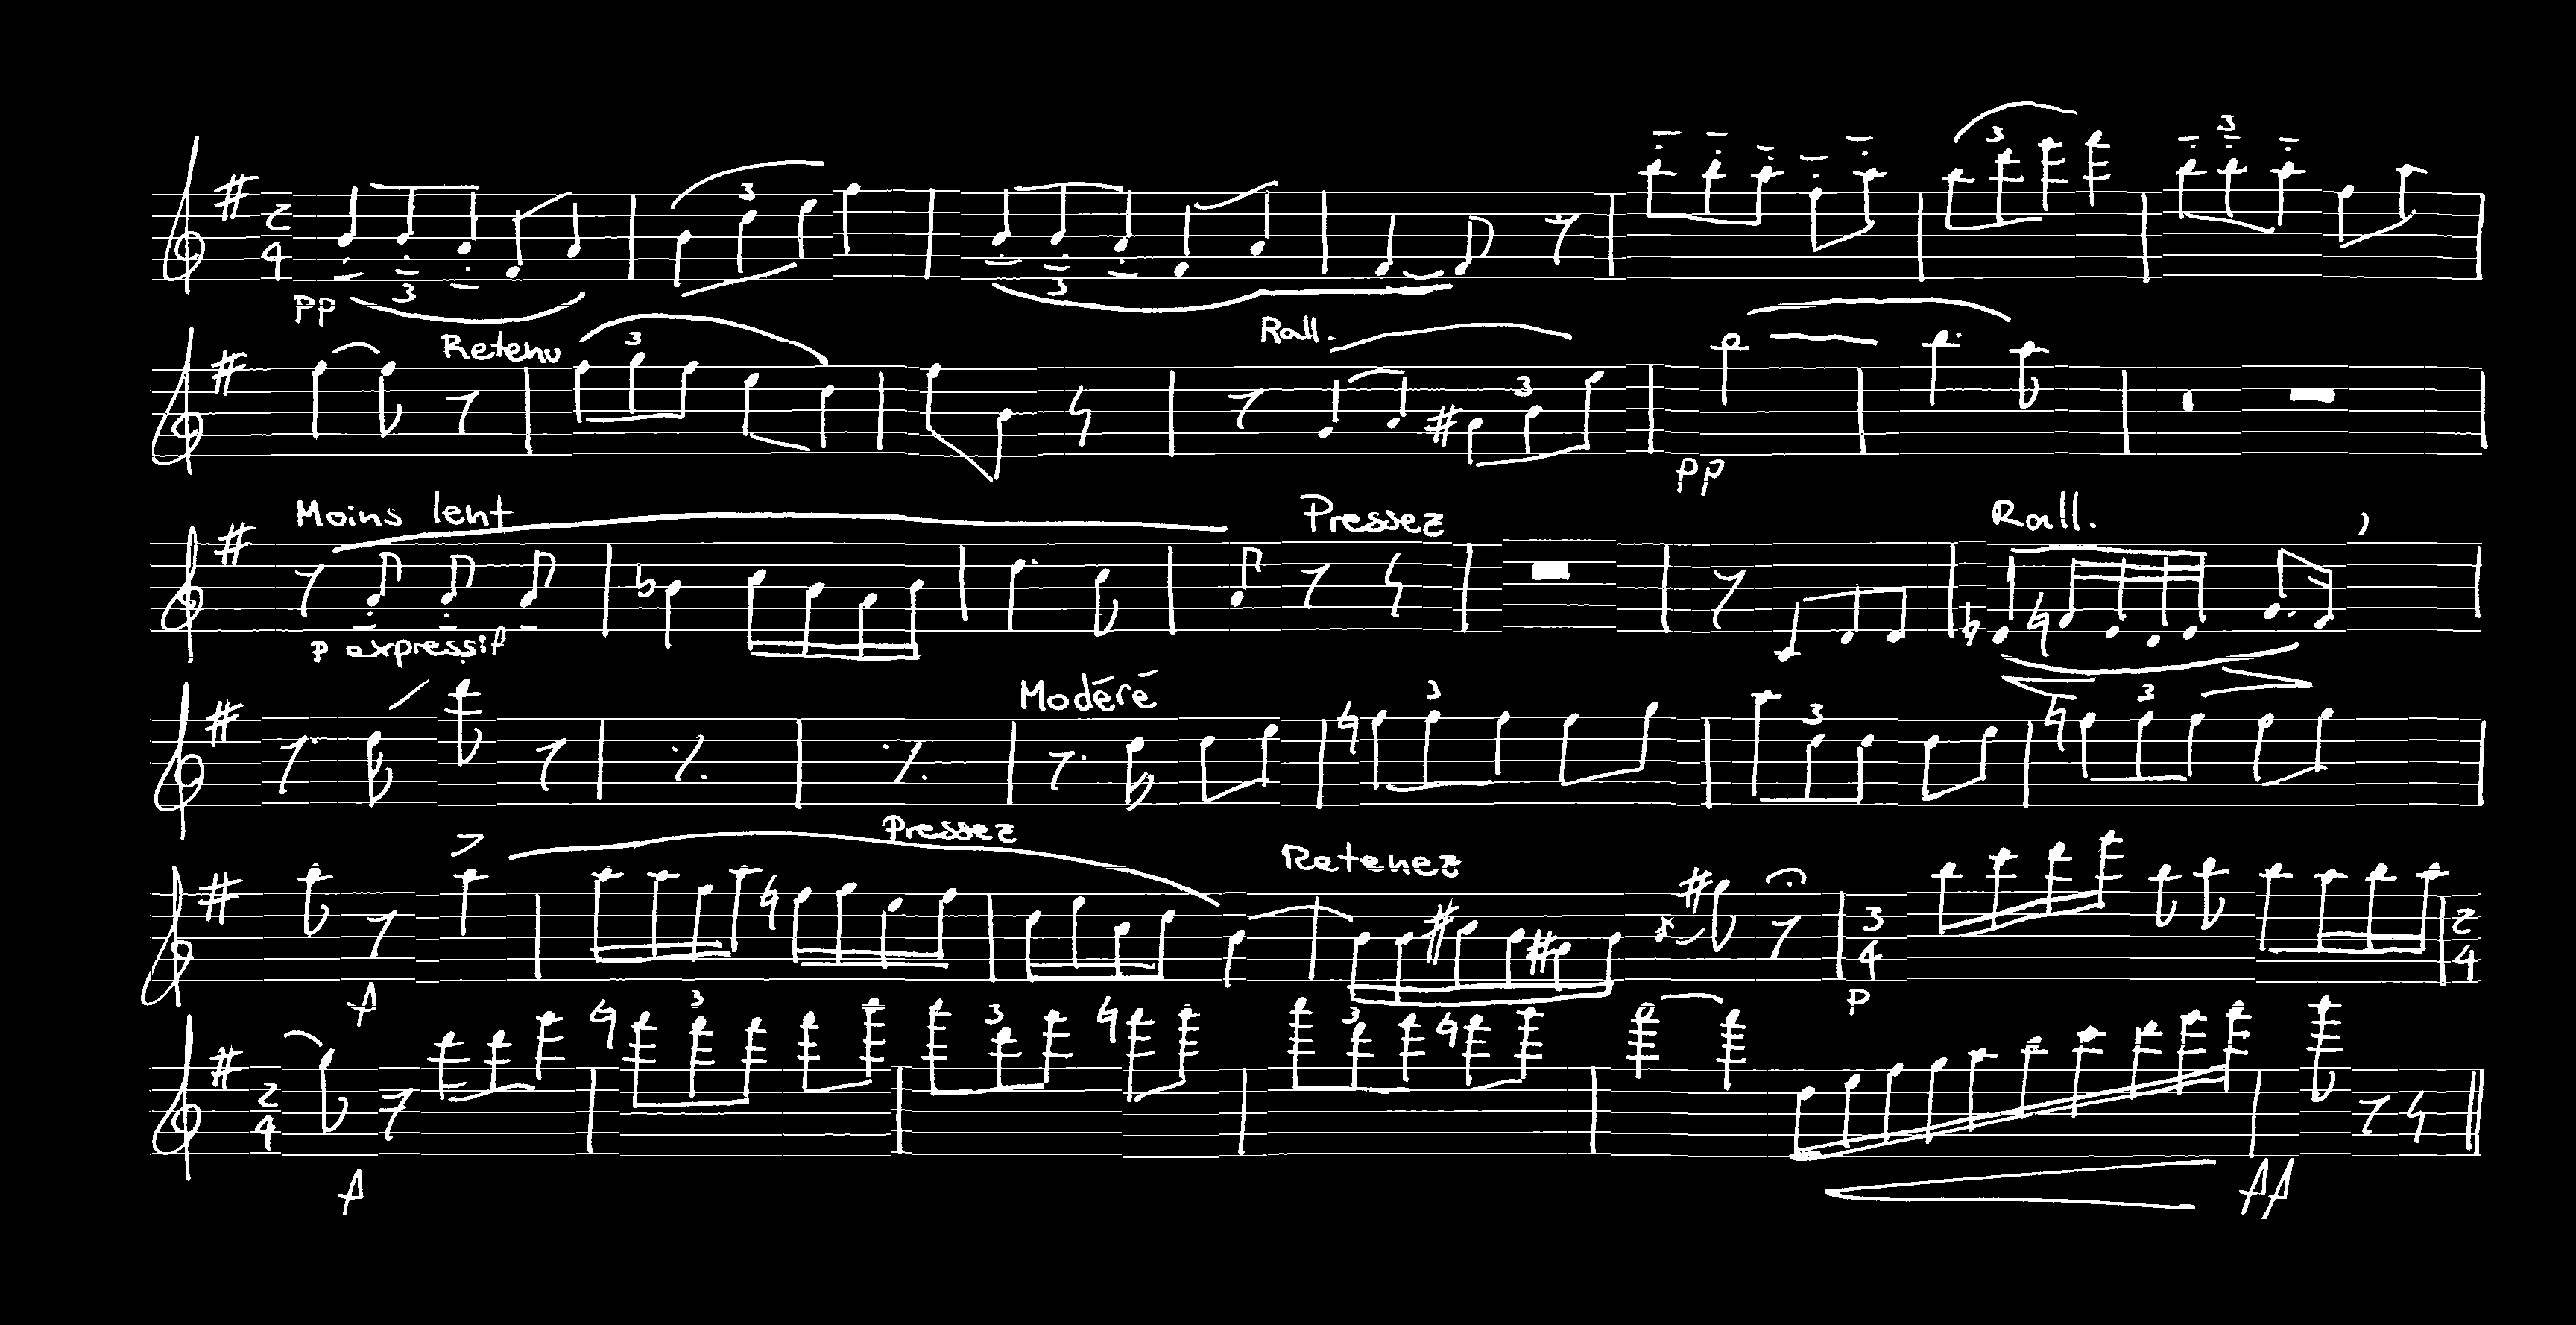 3 3 3
2
4
pp 3 3
Retenu 3 Rall. 3
pp
Moins lent Pressez Rall. ,
p expressif
Modéré 3 3 3
Pressez
Retenez
3 2
4 4
f p
3 3 3
2
4
f ff